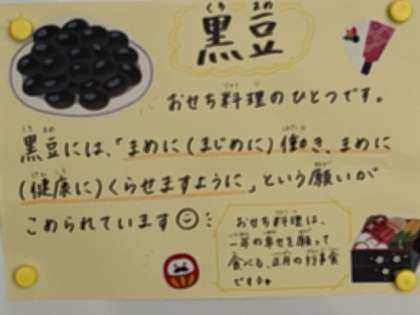 黒豆
おせち料理のひとつです。
黒豆には、「まめに(まじめに)働き、まめに
(健康に)くらせますように」という願いが
こめられています
おせち料理は、
一年の幸せを願って
食べる、正月の行事食
です